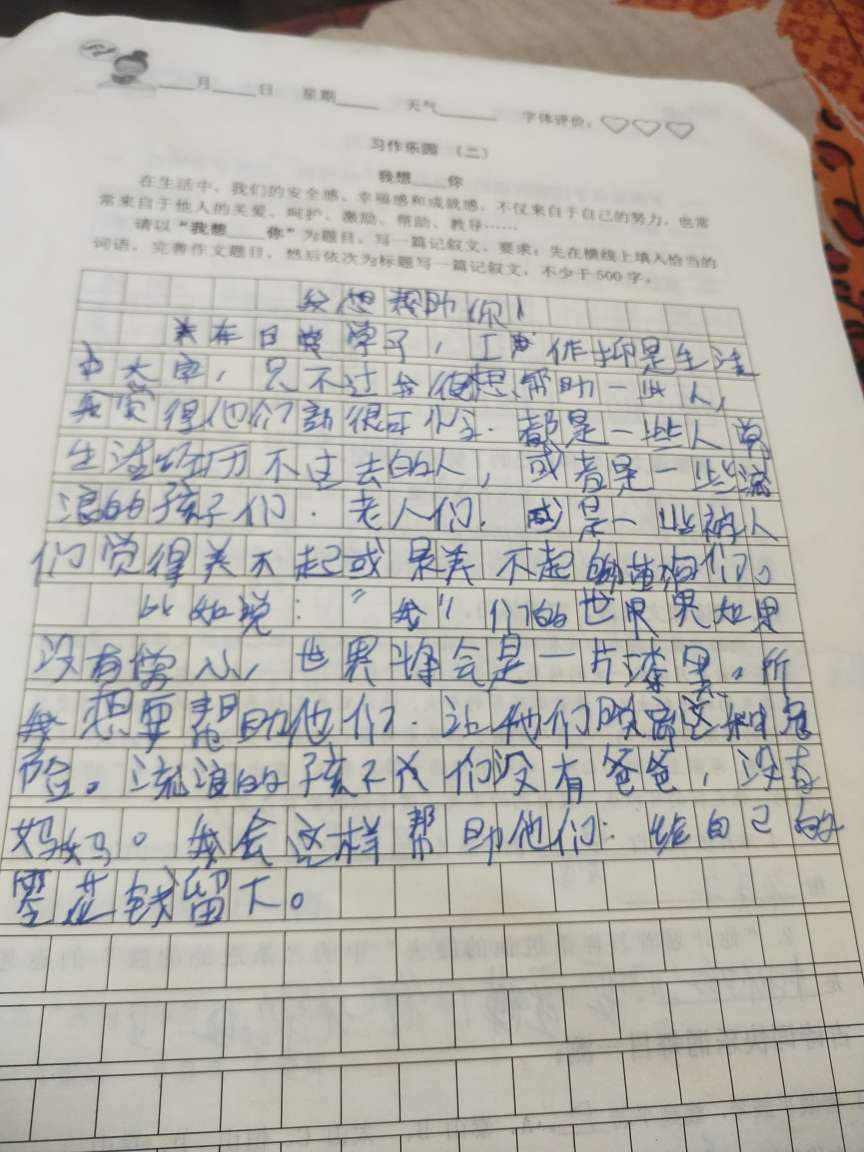 月 日 星期 天气 字体评价：
习作乐园 （二）
我想 你
在生活中，我们的安全感、幸福感和成就感，不仅来自于自己的努力，也常
常来自于他人的关爱、呵护、激励、帮助、教导……
请以“我想 你”为题目，写一篇记叙文。要求：先在横线上填入恰当的
词语，完善作文题目，然后依次为标题写一篇记叙文，不少于500字。
我想帮助你！
在日常学习，工作抑是生活
中大家，只不过我很想帮助一些人，
我觉得他们都很可怜．都是一些人
生活经历不过去的人，或者是一些流
浪的孩子们．老人们．或是一些被人
们觉得关不起或是关不起的们。
比如说：“我”们的世界果如果
没有 心，世界将会是一片漆黑。所
我想要帮助他们．让他们脱离这种危
险。流浪的孩子 们没有爸爸，没有
妈妈。我会这样帮助他们：给自己的
零花钱留下。